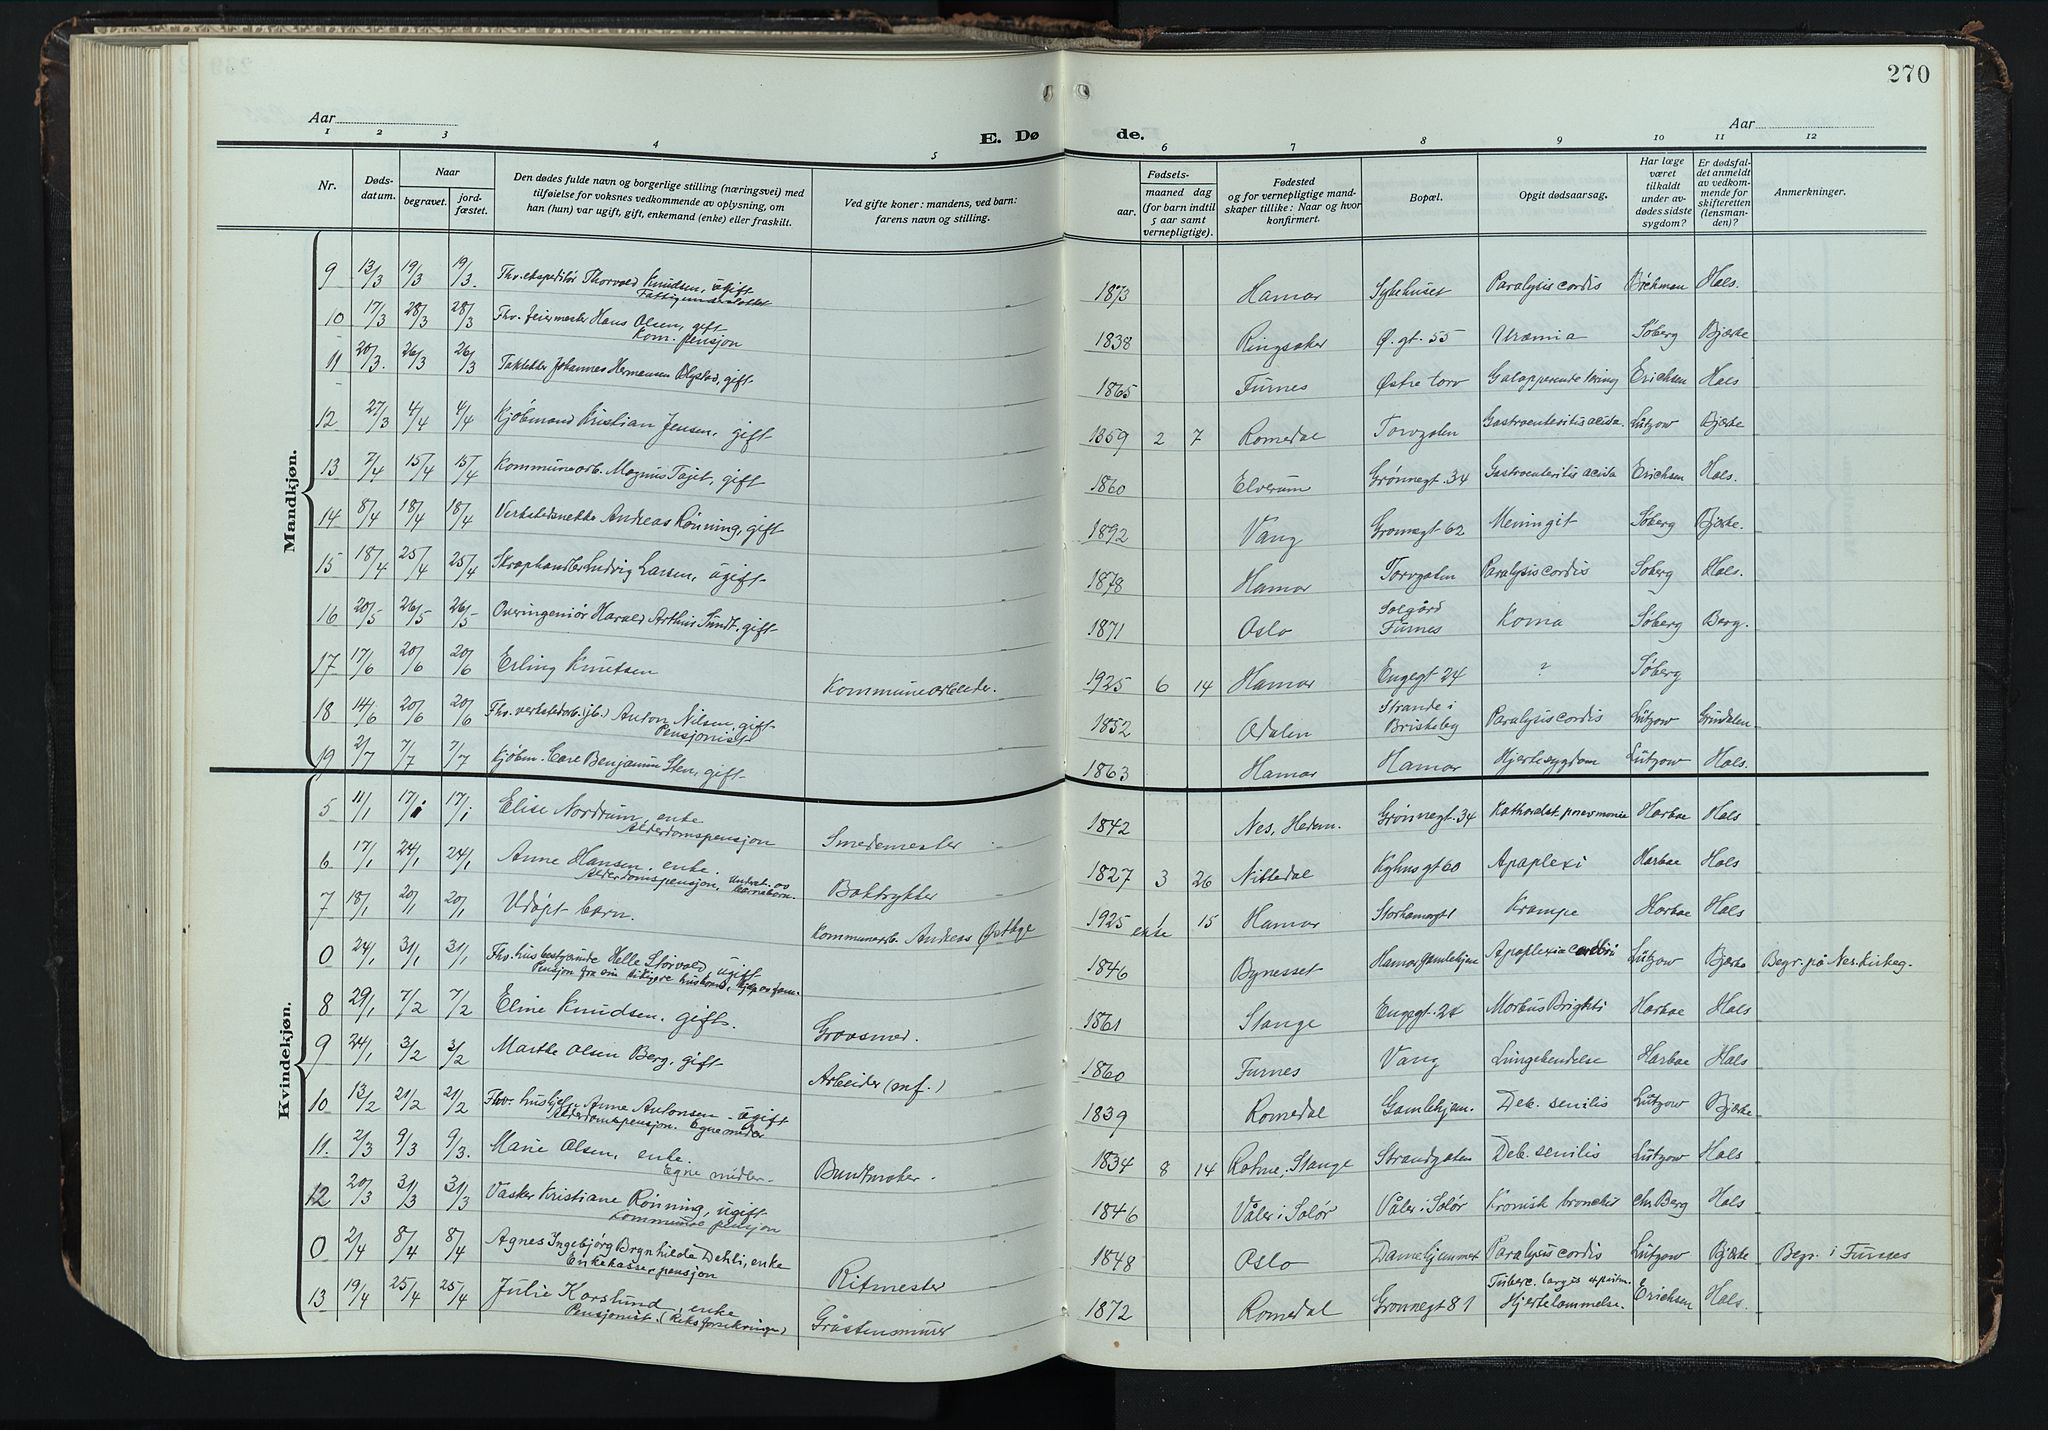 270
Aar
E. Dø de.
Aar
1 2 3 4 5 6 7 8 9 10 11 12
Nr.
Døds-
datum.
Naar
begravet.
jord-
fæstet.
Den dødes fulde navn og borgerlige stilling (næringsvei) med
tilføielse for voksnes vedkommende av oplysning, om
han (hun) var ugift, gift, enkemand (enke) eller fraskilt.
Ved gifte koner: mandens, ved barn:
farens navn og stilling.
Fødsels-
aar.
maaned dag
(for barn indtil
5 aar samt
vernepligtige).
Fødested
og for vernepligtige mand-
skaper tillike: Naar og hvor
konfirmert.
Bopæl.
Opgit dødsaarsag.
Har læge
været
tilkaldt
under av-
dødes sidste
sygdom?
Er dødsfal-
det anmeldt
av vedkom-
mende for
skifteretten
(lensman-
den)?
Anmerkninger.
Mandkjøn.
9 13/3 19/3 19/3. Fhv. ekspeditør Thorvald Knudsen, ugift 1873 Hamar Sykehuset Paralysis cordis Hals.
Fattigunderstøttet
10 17/3 28/3 28/3 Fhv. feiermester Hans Olsen, gift 1838 Ringsaker Ø. gt. 55 Uræmia Søberg Bjerke
Kom. pensjon
11 20/3. 26/3 26/3 Taktekker Johannes Hermansen Olystad, gift 1865 Furnes Østre torv Galopperende tæring Erichsen Hals
12 27/3 4/4 4/4 Kjøbmand Kristian Jensen, gift 1859 2 7 Romedal Torvgaten Gastroenteritis acuta Lützow Bjerke
13 7/4 15/4 15/4 Kommunearb. Magnus Tajet, gift 1860 Elverum Grønnegt. 34 Gastroenteritis acuta Erichsen Hals.
14 8/4 18/4 18/4 Verkstedsnekke Andreas Rønning, gift 1892 Vang Grønnegt 62 Meningit Søberg Bjerke.
15 18/4 25/4 25/4 Skraphandler Ludvig Larsen, ugift 1878 Hamar Torvgaten Paralysis cordis Søberg Hals.
16 20/5 26/5 26/5 Overingeniør Harald Arthur Sundt, gift 1871 Oslo Solgård Furnes Koma Søberg Berg.
17 17/6 20/6 20/6 Erling Knutsen Kommunearbeider. 1925 6 14 Hamar Engegt 24 ? Søberg
18 14/6 20/6 20/6 Fhv. verkstedarb. (jb.) Anton Nilsen, gift 1852 Odalen Strande i Briskeby Paralysis cordis Lützow Grudalen
Pensjonist
19 2/7 7/7 7/7 Kjøbm. Care Benjamin Sten, gift 1863 Hamar Hamar Hjertesygdom Lützow Hals.
Kvindekjøn.
5 11/1 17/1 17/1 Elise Nordrum, enke Smedemester 1842 Nes, Hedm. Grønnegt. 34 Katharalsk pneumonie Harboe Hals
Alderdomspensjon
6 17/1 24/1 24/1 Anne Hansen. enke. Boktrykker 1827 3 26 Nittedal Kyhnsgt 60 Apoplexi Harboe Hals
Alderdomspensjon, underst. av barnebarn.
7 18/1 20/1 20/1 Udøpt barn. Kommunearb. Andreas Østhge 1925 ekte 1 15 Hamar Storhamargt Krampe Harboe Hals
0 24/1 31/1 31/1 Fhv. husbestyrinde Helle Storvold, ugift 1846 Bynesset Hamar Gamlehjem Apoplexia cerebri Lützow Bjerke Begr. på Nes kirkeg.
Pensjon fra sin tidligere husbond, hjelp av fam.
8 29/1 7/2 7/2 Eline Knudsen. gift. Grovsmed. 1861 Stange Engegt. 24 Morbus Brighti Harboe Hals
9 24/1 3/2 3/2 Marthe Olsen Berg, gift Arbeider (mf.) 1860 Furnes Vang Lungebetendelse Harboe Hals
10 13/2 21/2 21/2 Fhv. hushjelp Anne Antonsen. ugift 1839 Romedal Gamlehjem. Deb. senilis Lützow Bjerke
Alderdomspensjon. Egne midler
11. 2/3 9/3 9/3. Marie Olsen, enke. Buntmaker. 1834 8 14 Rohne, Stange Strandgaten Deb. senilis Lützow Hals
Egne midler.
12 20/3 31/3 31/3 Vasker Kristiane Rønning, ugift 1846 Våler i Solør Våler i Solør Kronisk bronchit Chr. Berg Hals
Kommunoe pensjon
0 2/4 8/4 8/4 Agnes Ingebjørg Brynhilda Dehli, enke Ritmester 1848 Oslo Damehjemmet Paralysis cordis Lützow Bjerke Begr. i Furnes
Enkekassepensjon
13 19/4 25/4 25/4 Julie Korslund, enke Gråstensmurer 1872 Romedal Grønnegt 81 Tuberc. Hjertelammelse. Erichsen Hals.
Pensjonist. (Riksforsikringen)